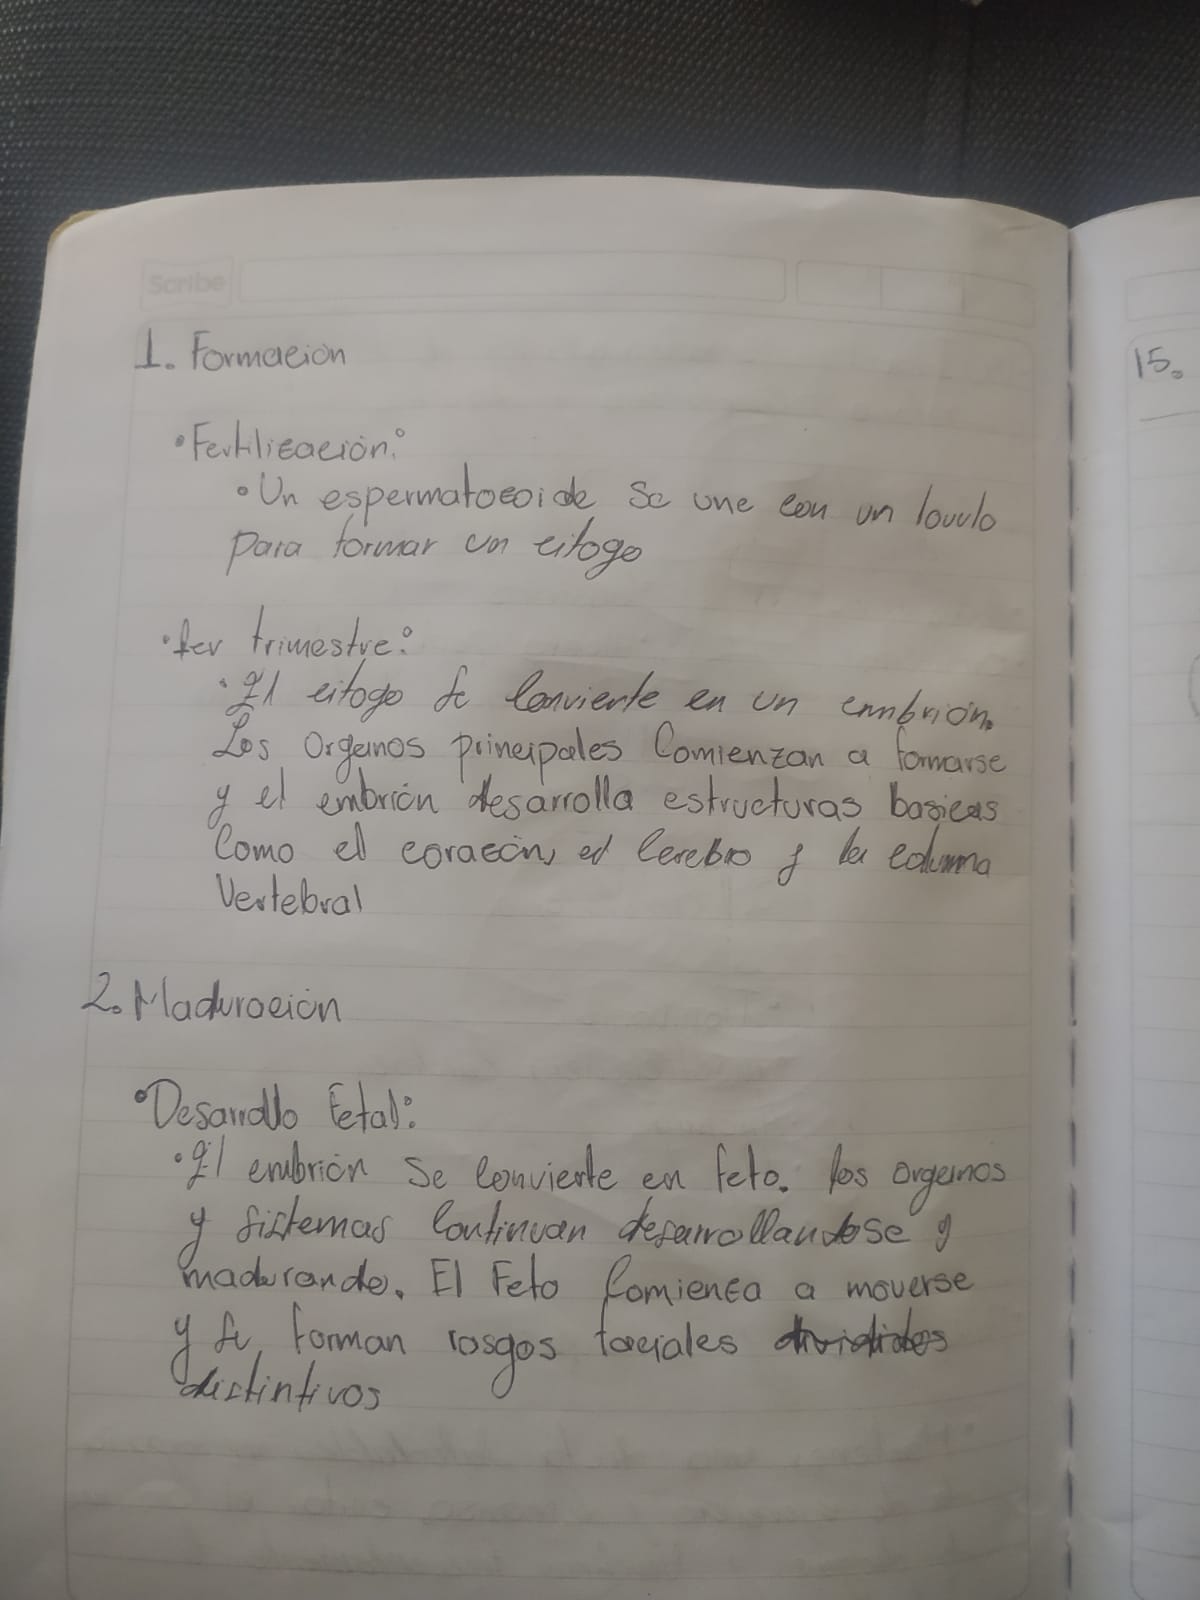 Scribe
1. Formación
15.
• Fertilización:
• Un espermatozoide se une con un louulo
para formar un citogo
• 1er trimestre:
• El citogo se convierte en un embrión.
Los organos principales comienzan a formarse
y el embrión desarrolla estructuras basicas
como el corazón, el cerebro y la columna
Vertebral
2. Maduración
• Desarrollo Fetal:
• El embrión se convierte en feto. los organos
y sistemas continuan desarrollandose y
madurando. El Feto comienza a moverse
y se forman rasgos faciales
distintivos